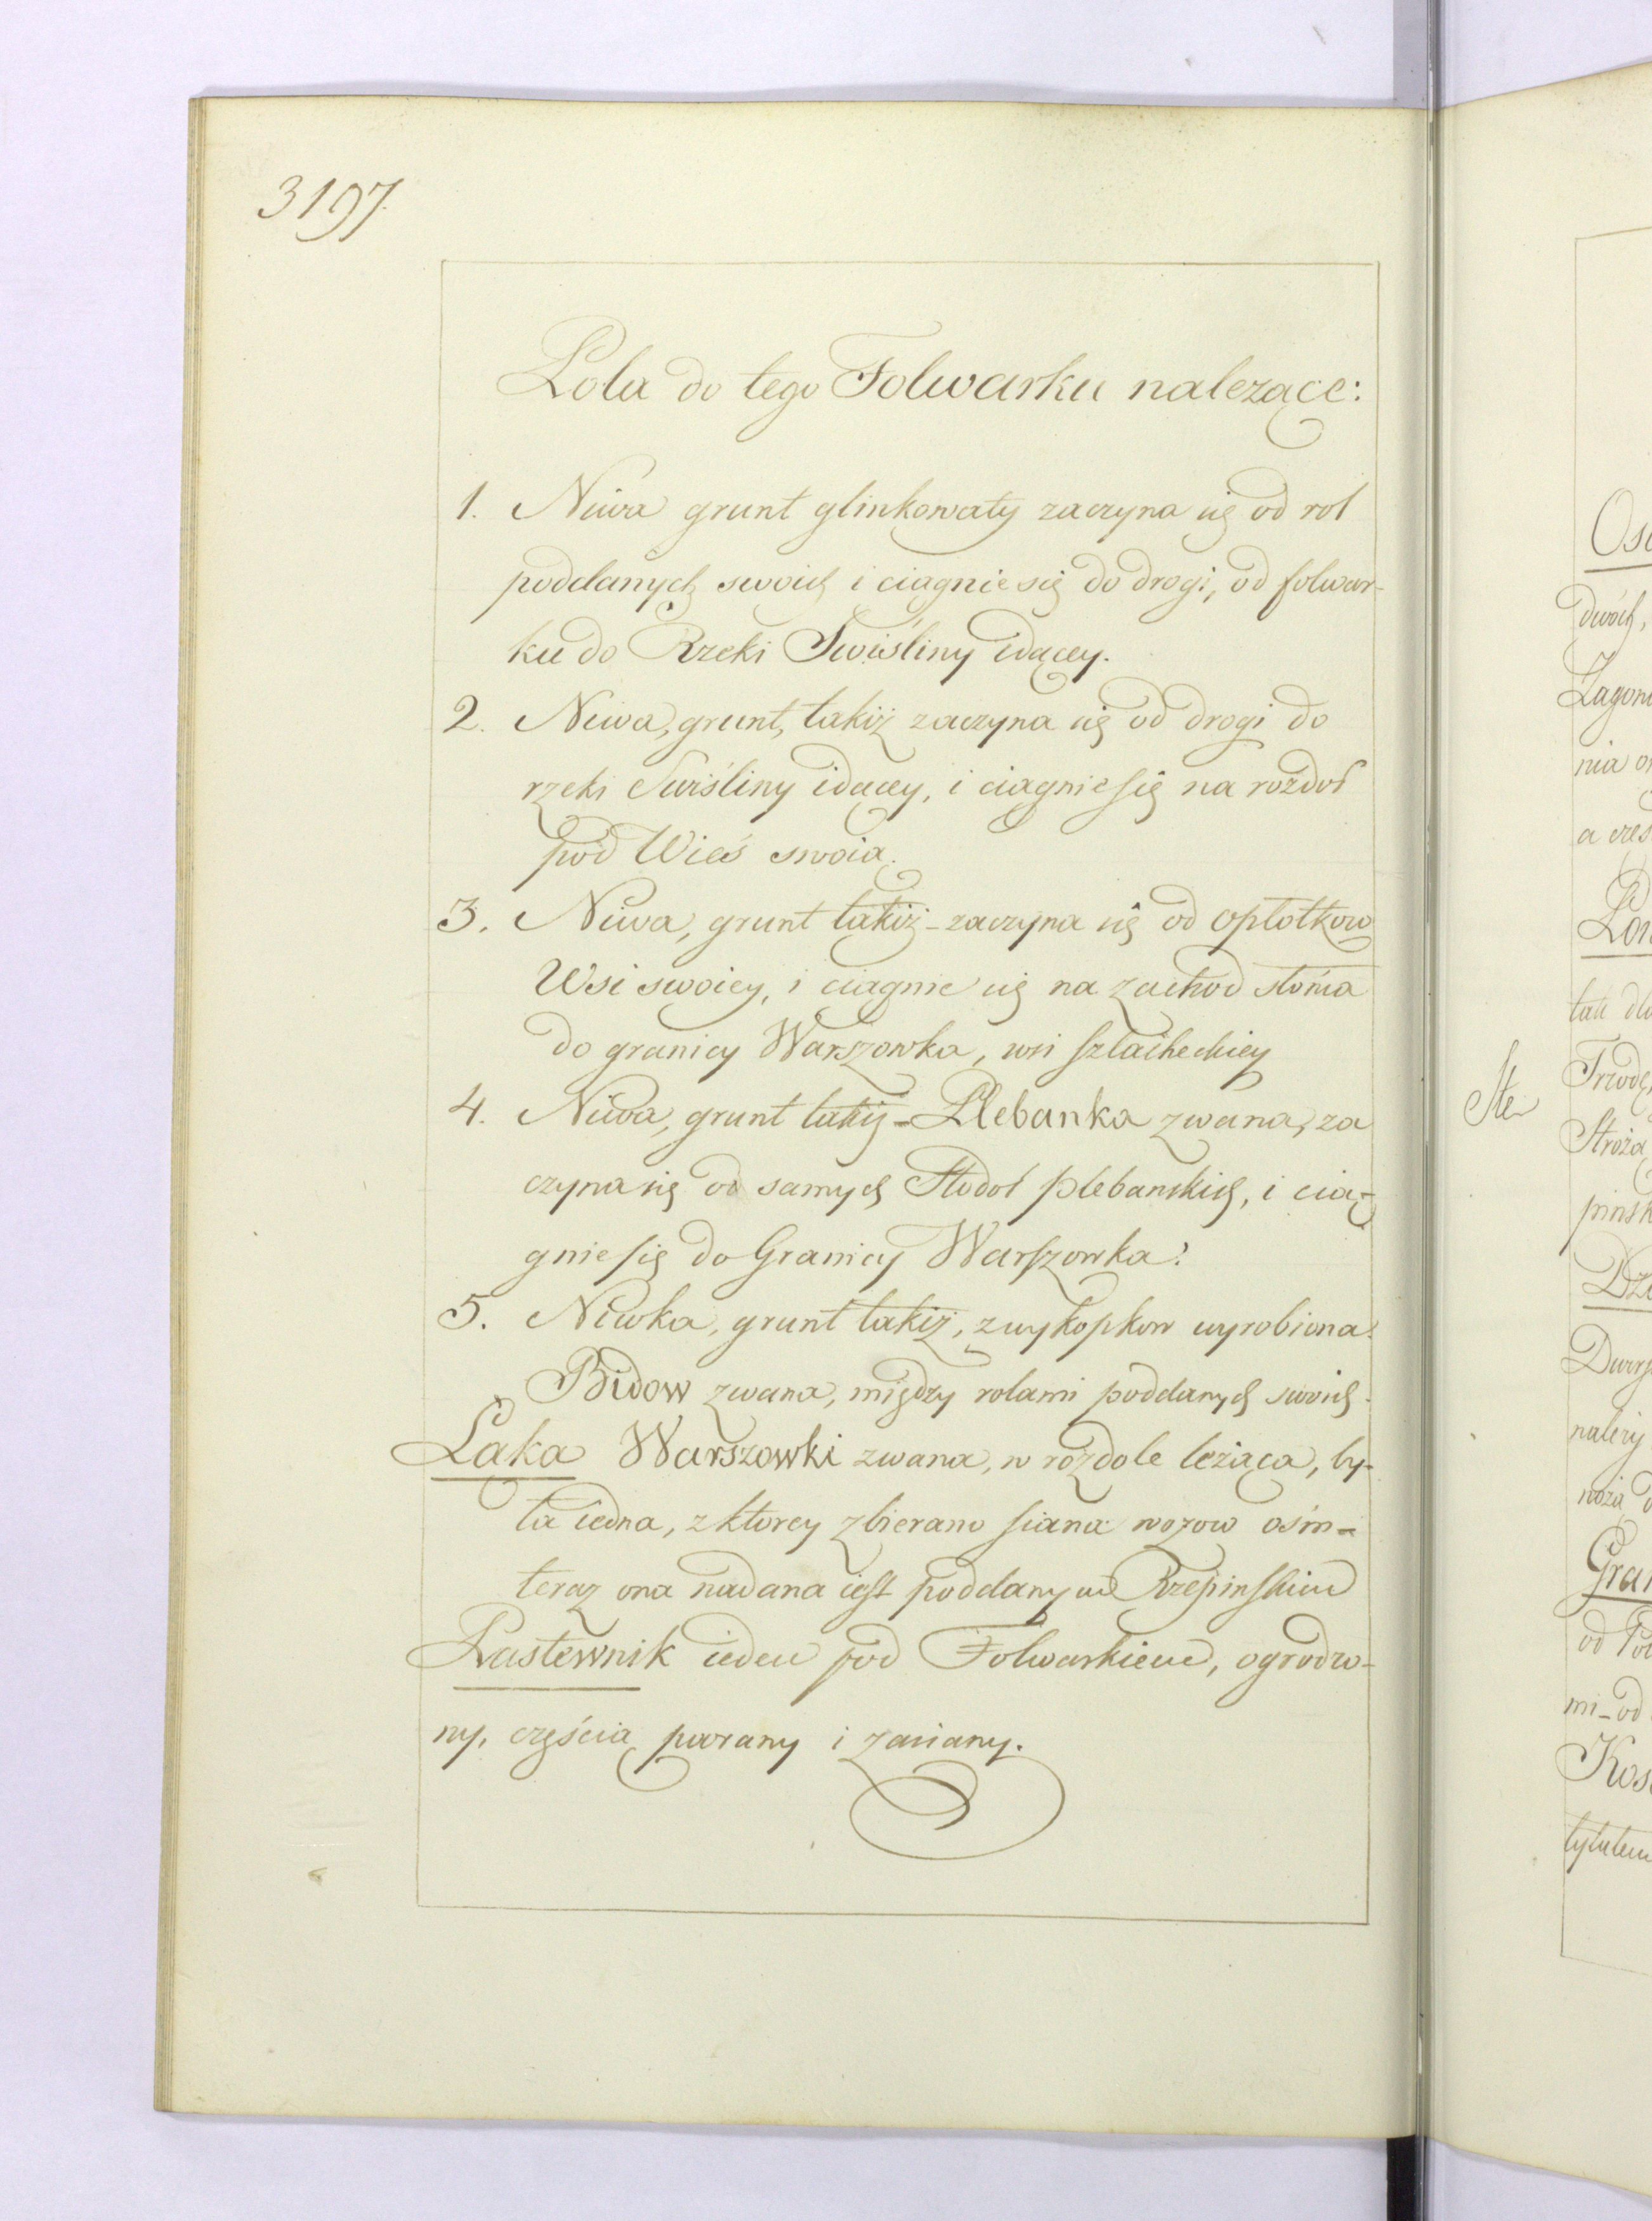 3197.
Pola do tego Folwarku nalezące:
1. Niwa grunt glinkowaty zaczyna się od rol
poddanych swoich i ciągnie się do drogi, od folwar-
ku do Rzeki Swiśliny idącey.
2. Niwa, grunt, takiż zaczyna się od drogi do
rzeki Swiśliny idącey, i ciągnie się na rozdoł
pod Wieś swoią.
3. Niwa, grunt takiż - zaczyna się od opłotkow
Wsi swoiey, i ciągnie się na zachod słońca
do granicy Warszowka, wsi szlacheckiey
4. Niwa, grunt takiż - Plebanka zwana, za
czyna się od samych Stodoł plebanskich, i cią-
gnie się do Granicy Warszowka.
5. Niwka, grunt takiż, z wykopkow wyrobiona.
Bidow zwana, między rolami poddanych swoich.
Łąka Warszowki zwana, w rozdole leżąca, by-
ła iedna, z ktorey zbierano siana wozow ośm -
teraz ona nadana iest poddanym Rzepinskim
Pastewnik ieden pod Folwarkiem, ogrodzo-
ny, częścią poorany i zasiany.
Ste
dwóch,
nia
a
tak
Stroża
należy
od
mi - od
tytułem